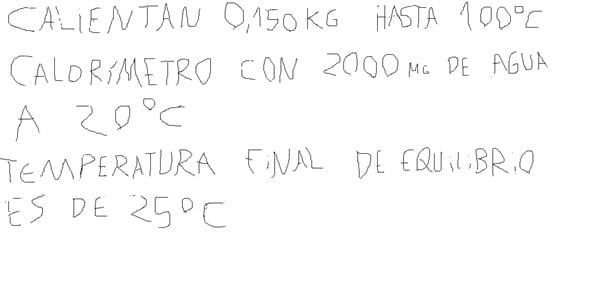 CALIENTAN 0,150KG HASTA 100°C
CALORÍMETRO CON 2000 MG DE AGUA
A 20°C
TEMPERATURA FINAL DE EQUILIBRIO
ES DE 25°C